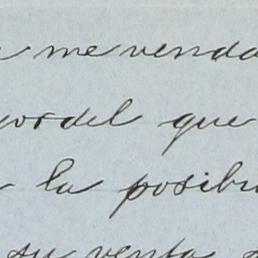 me venda
del que
la posibi
su venta